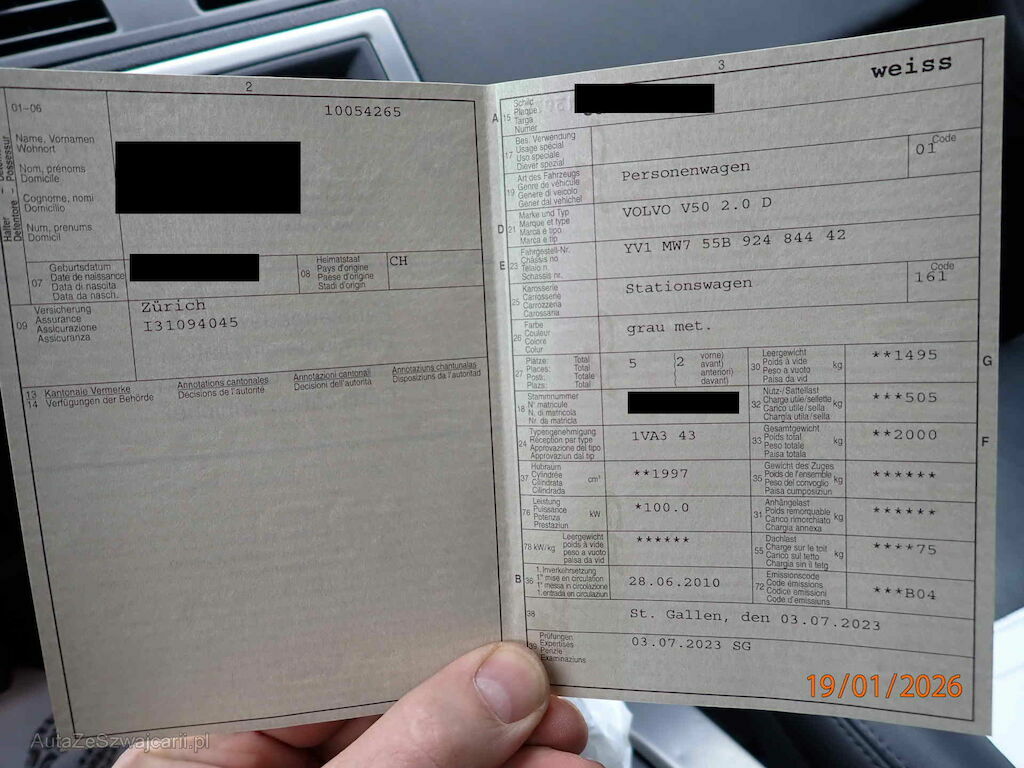 2
01-06
10054265
Halter Detentore - Possessur
Name, Vornamen
Wohnort
Nom, prénoms
Domicile
Cognome, nomi
Domicilio
Num, prenums
Domicil
07
Geburtsdatum
Date de naissance
Data di nascita
Data da nasch.
08
Heimatstaat
Pays d'origine
Paese d'origine
Stadi d'origin
CH
09
Versicherung
Assurance
Assicurazione
Assicuranza
Zürich
I31094045
13 Kantonale Vermerke
14 Verfügungen der Behörde
Annotations cantonales
Décisions de l'autorité
Annotazioni cantonali
Decisioni dell'autorità
Annotaziuns chantunalas
Disposiziuns da l'autoritad
3
weiss
A
15
Schild
Plaque
Targa
Numer
17
Bes. Verwendung
Usage spécial
Uso speciale
Diever spezial
19
Art des Fahrzeugs
Genre de véhicule
Genere di veicolo
Gener dal vehichel
Personenwagen
Code
01
D
21
Marke und Typ
Marque et type
Marca e tipo
Marca e tip
VOLVO V50 2.0 D
E
23
Fahrgestell-Nr.
Châssis no
Telaio n.
Schassis nr.
YV1 MW7 55B 924 844 42
25
Karosserie
Carrosserie
Carrozzeria
Carossaria
Stationswagen
Code
161
26
Farbe
Couleur
Colore
Colur
grau met.
27
Plätze: Total
Places: Total
Posti: Totale
Plazs: Total
5
2
vorne)
avant)
anteriori)
davant)
30
Leergewicht
Poids à vide
Peso a vuoto
Paisa da vid
kg
**1495
G
18
Stammnummer
N° matricule
N. di matricola
Nr. da matricla
32
Nutz-/Sattellast
Charge utile/sellette
Carico utile/sella
Chargia utila/sella
kg
***505
24
Typengenehmigung
Réception par type
Approvazione del tipo
Approvaziun dal tip
1VA3 43
33
Gesamtgewicht
Poids total
Peso totale
Paisa totala
kg
**2000
F
37
Hubraum
Cylindrée
Cilindrata
Cilindrada
cm³
**1997
35
Gewicht des Zuges
Poids de l'ensemble
Peso del convoglio
Paisa cumposiziun
kg
******
76
Leistung
Puissance
Potenza
Prestaziun
kW
*100.0
31
Anhängelast
Poids remorquable
Carico rimorchiato
Chargia annexa
kg
******
78 kW/kg
Leergewicht
poids à vide
peso a vuoto
paisa da vid
******
55
Dachlast
Charge sur le toit
Carico sul tetto
Chargia sin il tetg
kg
****75
B
36
1. Inverkehrsetzung
1re mise en circulation
1a messa in circolazione
1. entrada en circulaziun
28.06.2010
72
Emissionscode
Code émissions
Codice emissioni
Code d'emissiuns
***B04
38
St. Gallen, den 03.07.2023
39
Prüfungen
Expertises
Perizie
Examinaziuns
03.07.2023 SG
19/01/2026
AutaZeSzwajcarii.pl